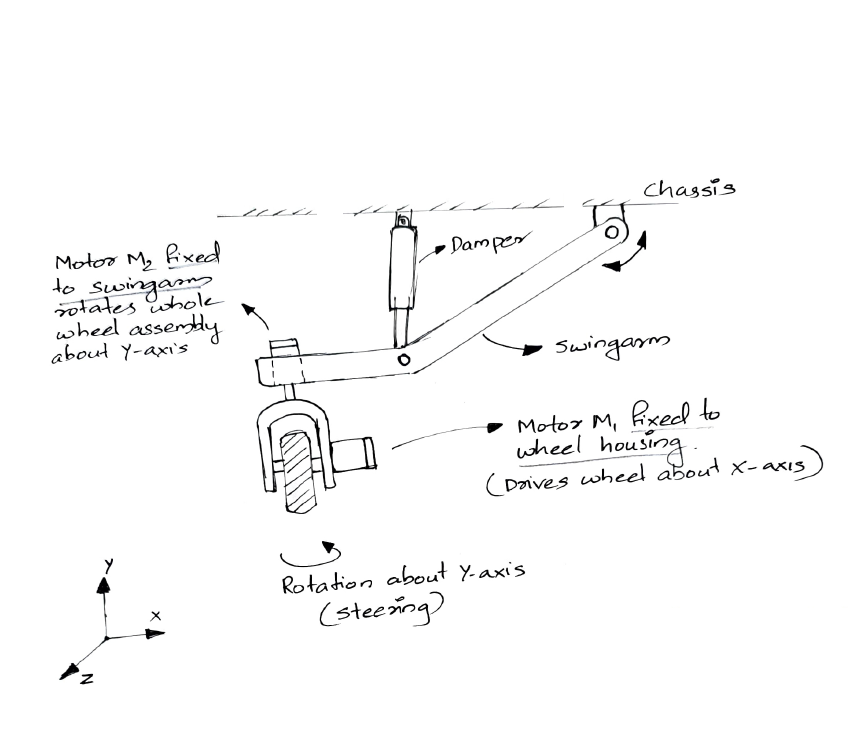 Chassis
Damper
Motor M₂ fixed
to swingarm
rotates whole
wheel assembly
about Y-axis
swingarm
Motor M₁ fixed to
wheel housing.
(Drives wheel about X-axis)
Rotation about Y-axis
(steering)
Y
X
Z